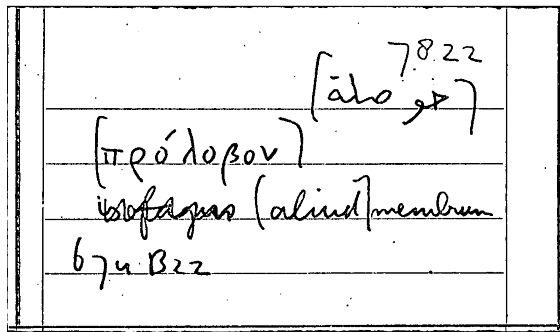 7822
[πρόλοβον]
isofagus [aliud] membrum
674 B22